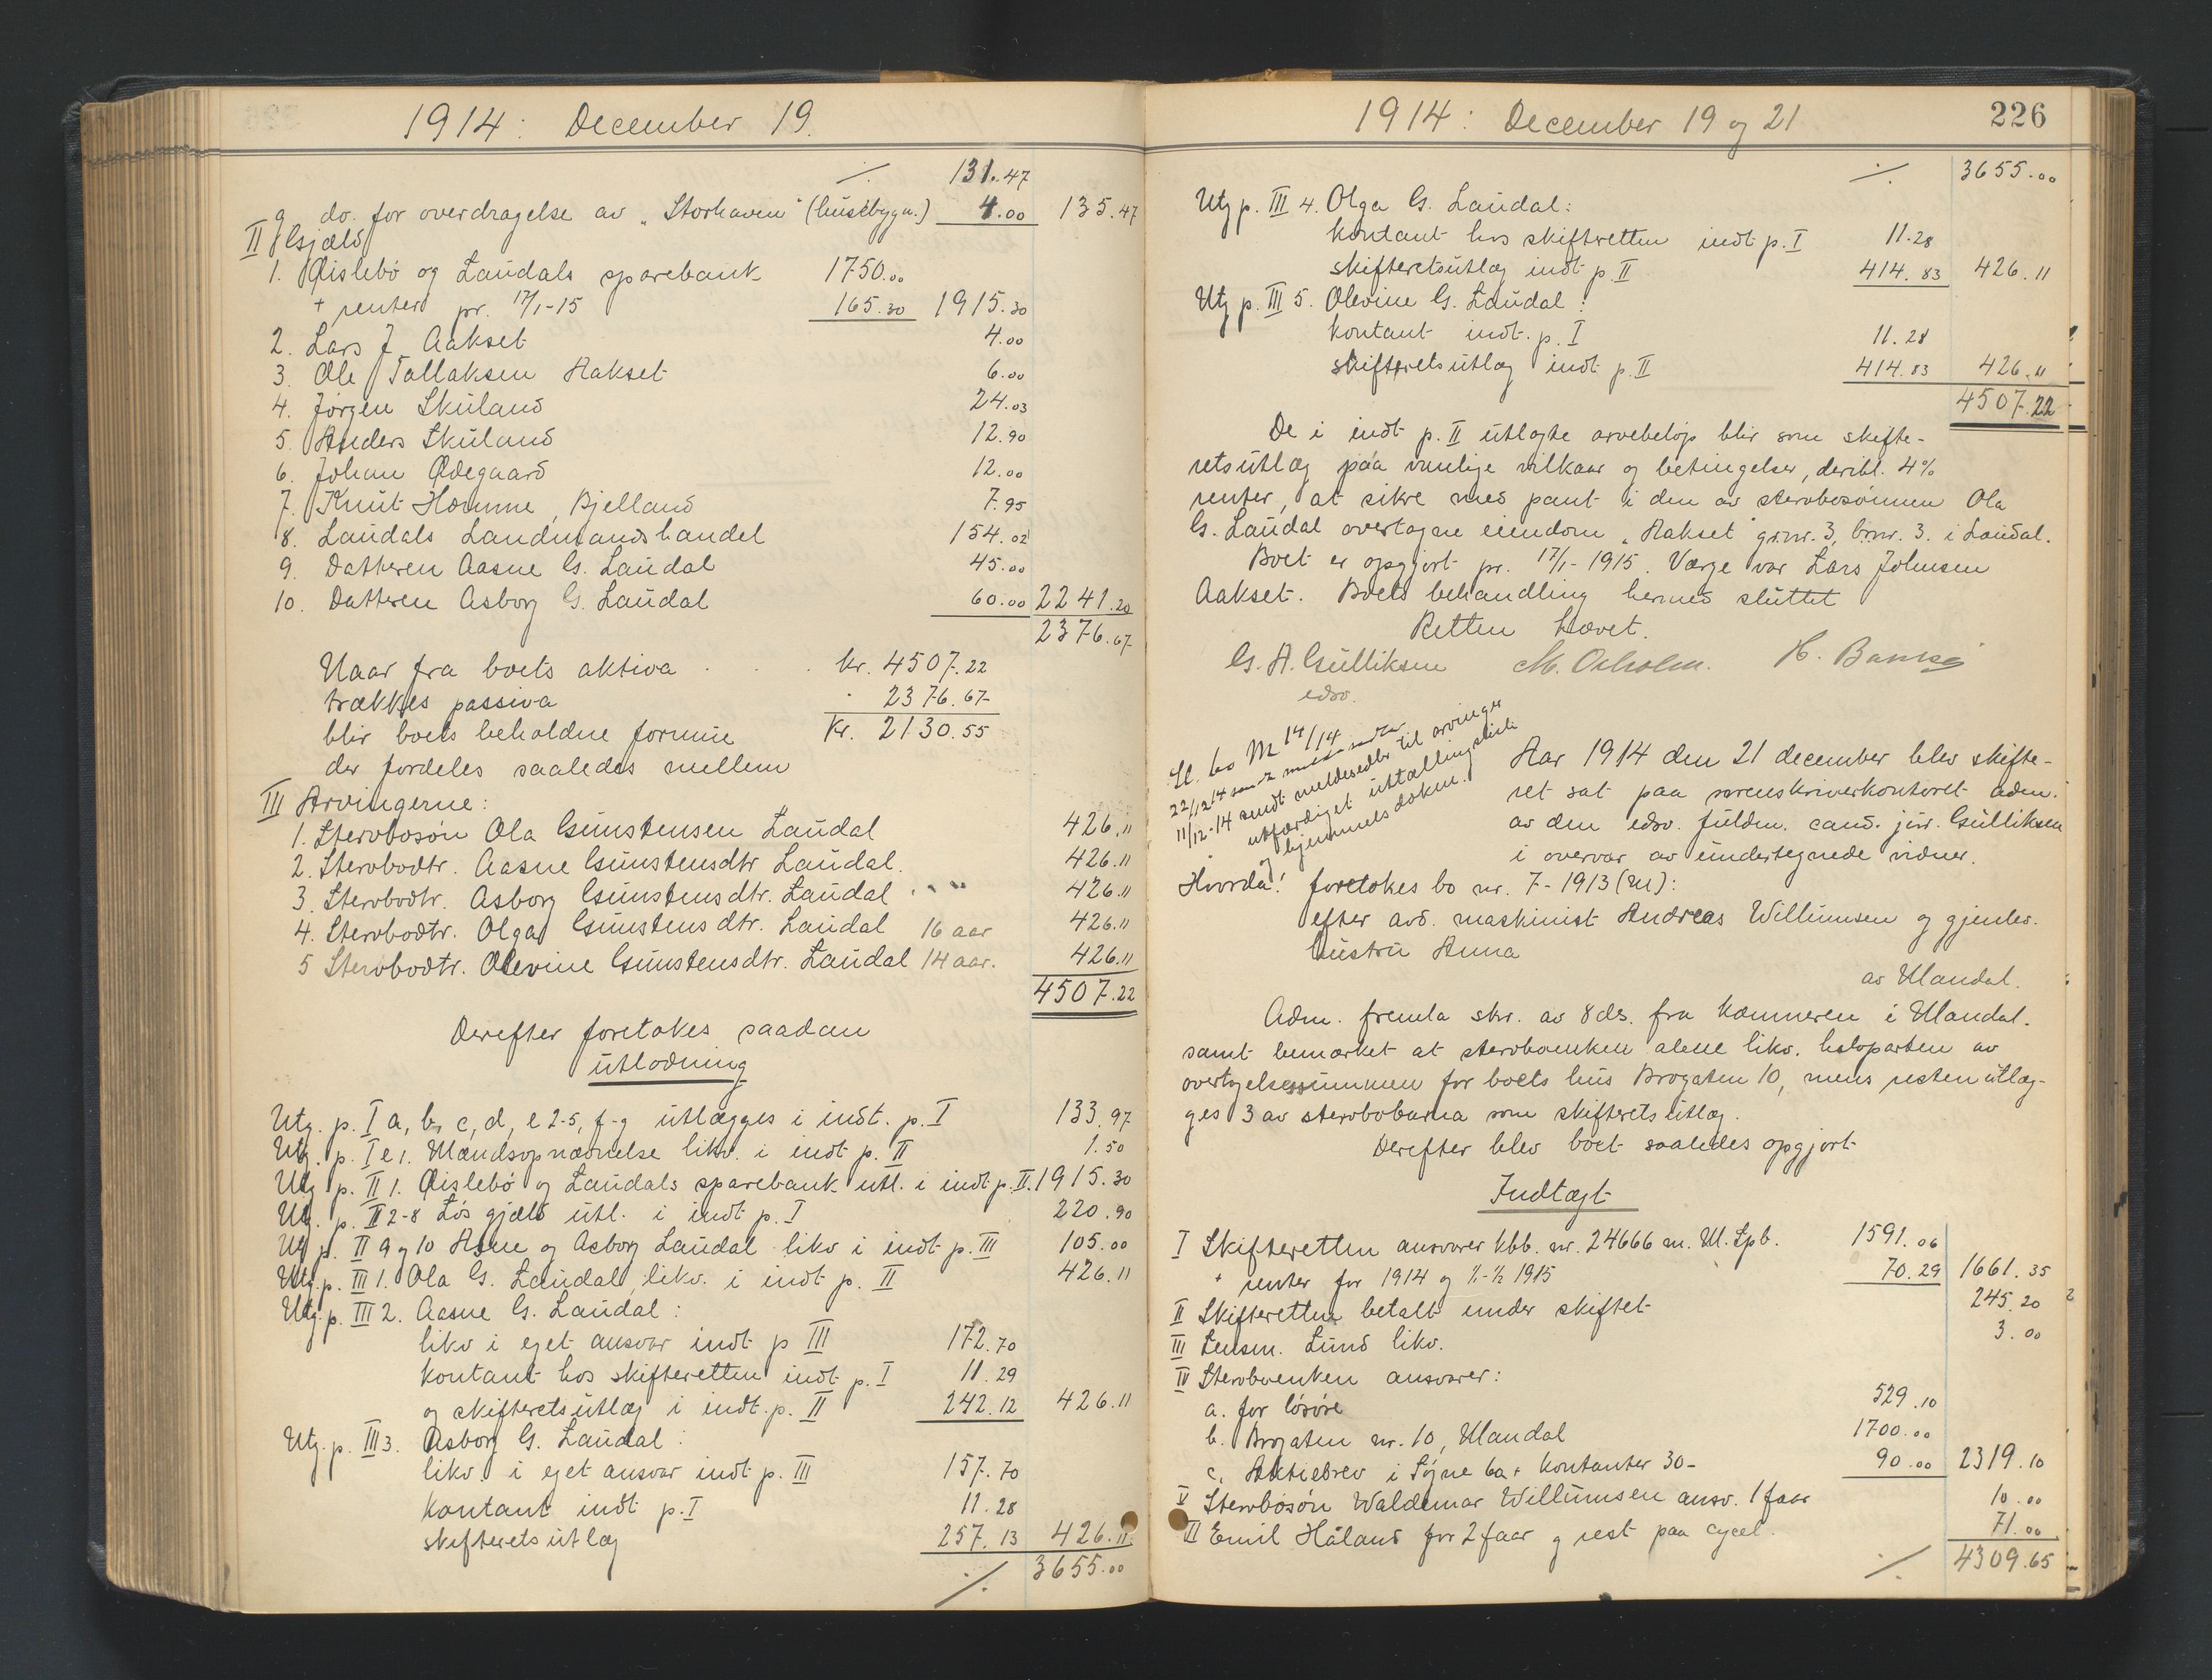 1914: December 19.
./. 131.47
g do. for overdragelse av „Storhaven" (husebygn.) 4.00 135.47
II Gjæld
1. Øislebö og Laudals sparebank 1750.00
+ renter pr. 17/1-15 165.30 1915.30
2. Lars J Aakset 4.00
3. Ole Tallaksen Aakset 6.00
4. Jørgen Skuland 24.03
5. Anders Skuland 12.90
6. Johan Ødegaard 12.00
7. Knut Homme, Bjelland 7.95
8. Laudals Landmandshandel 154.02
9. Datteren Aasne G. Laudal 45.00
10. Datteren Asborg G. Laudal 60.00 2241.20
2376.67
Naar fra boets aktiva . . . kr. 4507.22
trækkes passiva . 2376.67
blir boets beholdne formue Kr. 2130.55
der fordeles saaledes mellem
III Arvingerne:
1. Stervbosøn Ola Gunstensen Laudal 426.11
2. Stervbodtr. Aasne Gunstensdtr Laudal. 426.11
3. Stervbodtr. Asborg Gunstensdtr. Laudal 426.11
4. Stervbodtr. Olga Gunstensdtr. Laudal 16 aar 426.11
5 Stervbodtr. Olevine Gunstensdtr. Laudal 14 aar. 426.11
4507.22
Derefter foretokes saadan
utlodning
Utg. p. I a, b, c, d, e 2-5, f-g utlægges i indt. p. I 133.97
Utg. p. I e 1. Mandsopnævnelse likv. i indt p. II 1.50
Utg p. II 1. Øislebö og Laudals sparebank utl. i indt p. II. 1915.30
Utg. p. II 2-8 Løs gjæld utl. i indt p. I 220.90
Utg p. II 9 og 10 Asne og Asborg Laudal likv i indt p. III 105.00
Utg. p. III 1. Ola G. Laudal likv. i indt p. II 426.11
Utg. p. III 2. Aasne G. Laudal:
likv i eget ansvar indt p III 172.70
kontant hos skifteretten indt p. I 11.29
og skifteretsutlæg i indt. p. II 242.12 426.11
Utg. p. III 3. Asborg G. Laudal:
likv i eget ansvar indt p. III 157.70
kontant indt p. I 11.28
skifteretsutlæg 257.13 426.11
./. 3655.00
1914: December 19 og 21 226
./. 3655.00
Utg p. III 4. Olga G. Laudal:
kontant hos skifteretten indt p. I 11.28
skifteretsutlæg indt p II 414.83 426.11
Utg p. III 5. Olevine G. Laudal:
kontant indt. p. I 11.28
skifteretsutlæg indt p. II 414.83 426.11
4507.22
De i indt p. II utlagte arvebeløp blir som skifte-
retsutlæg paa vanlige vilkaar og betingelser, deribl. 4%
renter, at sikre med pant i den av stervbosønnen Ola
G. Laudal overtagne eiendom „Aakset" grnr. 3, brnr. 3. i Laudal.
Boet er opgjort pr. 17/1-1915. Værge var Lars Johnsen
Aakset. Boets behandling hermed sluttet
Retten hævet.
G. A. Gulliksen M. Oxholm. H. Banke
edsv.
Sl. bo M 14/14
22/12 14
11/12-14 sendt meldesedler til arvinger
utfærdiget uttælling skifte
og hjemmelsdokum.
Aar 1914 den 21 december blev skifte-
ret sat paa sorenskriverkontoret adm.
av den edsv. fuldm. cand. jur. Gulliksen
i overvær av undertegnede vidner.
Hvorda! foretokes bo nr. 7-1913 (M):
efter avd. maskinist Andreas Willumsen og gjenlev.
hustru Anna
av Mandal.
Adm. fremla skr. av 8 ds. fra kæmneren i Mandal.
samt bemerket at stervboenken alene likv. halvparten av
overtagelsessummen for boets hus Brogaten 10, mens resten utlæg-
ges 3 av stervbobarna som skifteretsutlæg.
Derefter blev boet saaledes opgjort
Indtægt
I Skifteretten ansvarer kbb. nr. 24666 m. M. Spb. 1591.06
+ renter for 1914 og 1/1-1/2 1915 70.29 1661.35
II Skifteretten betalt under skiftet 245.20
III Lensm. Lund likv. 3.00
IV Stervboenken ansvarer:
a. for løsøre 529.10
b. Brogaten nr. 10, Mandal 1700.00
c. Aktiebrev i Søgne 60 + kontanter 30- 90.00 2319.10
V Stervbosøn Waldemar Willumsen ansv. 1 faar 10.00
VI Emil Håland for 2 faar og rest paa cycel. 71.00
./. 4309.65